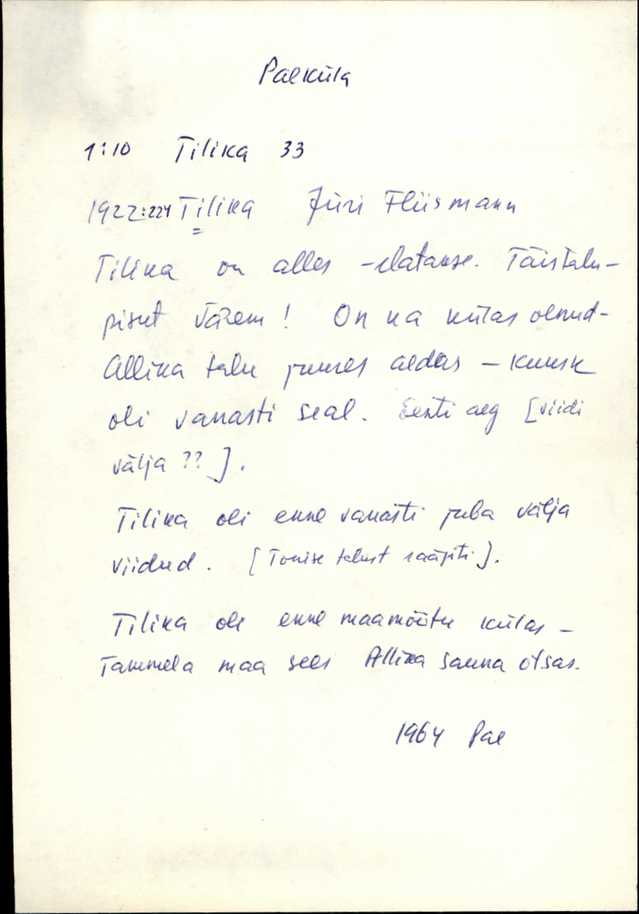 Paeküla
1:10 Tilika 33
1922:224 Tilika Jüri Fliismann
Tilika on alles – elatakse. Täistalu –
pisut vähem! On ka külas olnud –
Allika talu juures aedas – kuusk
oli vanasti seal. Eesti aeg [viidi
välja ??].
Tilika oli enne vanasti juba välja
viidud. [Tonise talust räägiti].
Tilika oli enne maamõõtu külas –
Tammela maa sees Allika sauna otsas.
1964 Pae